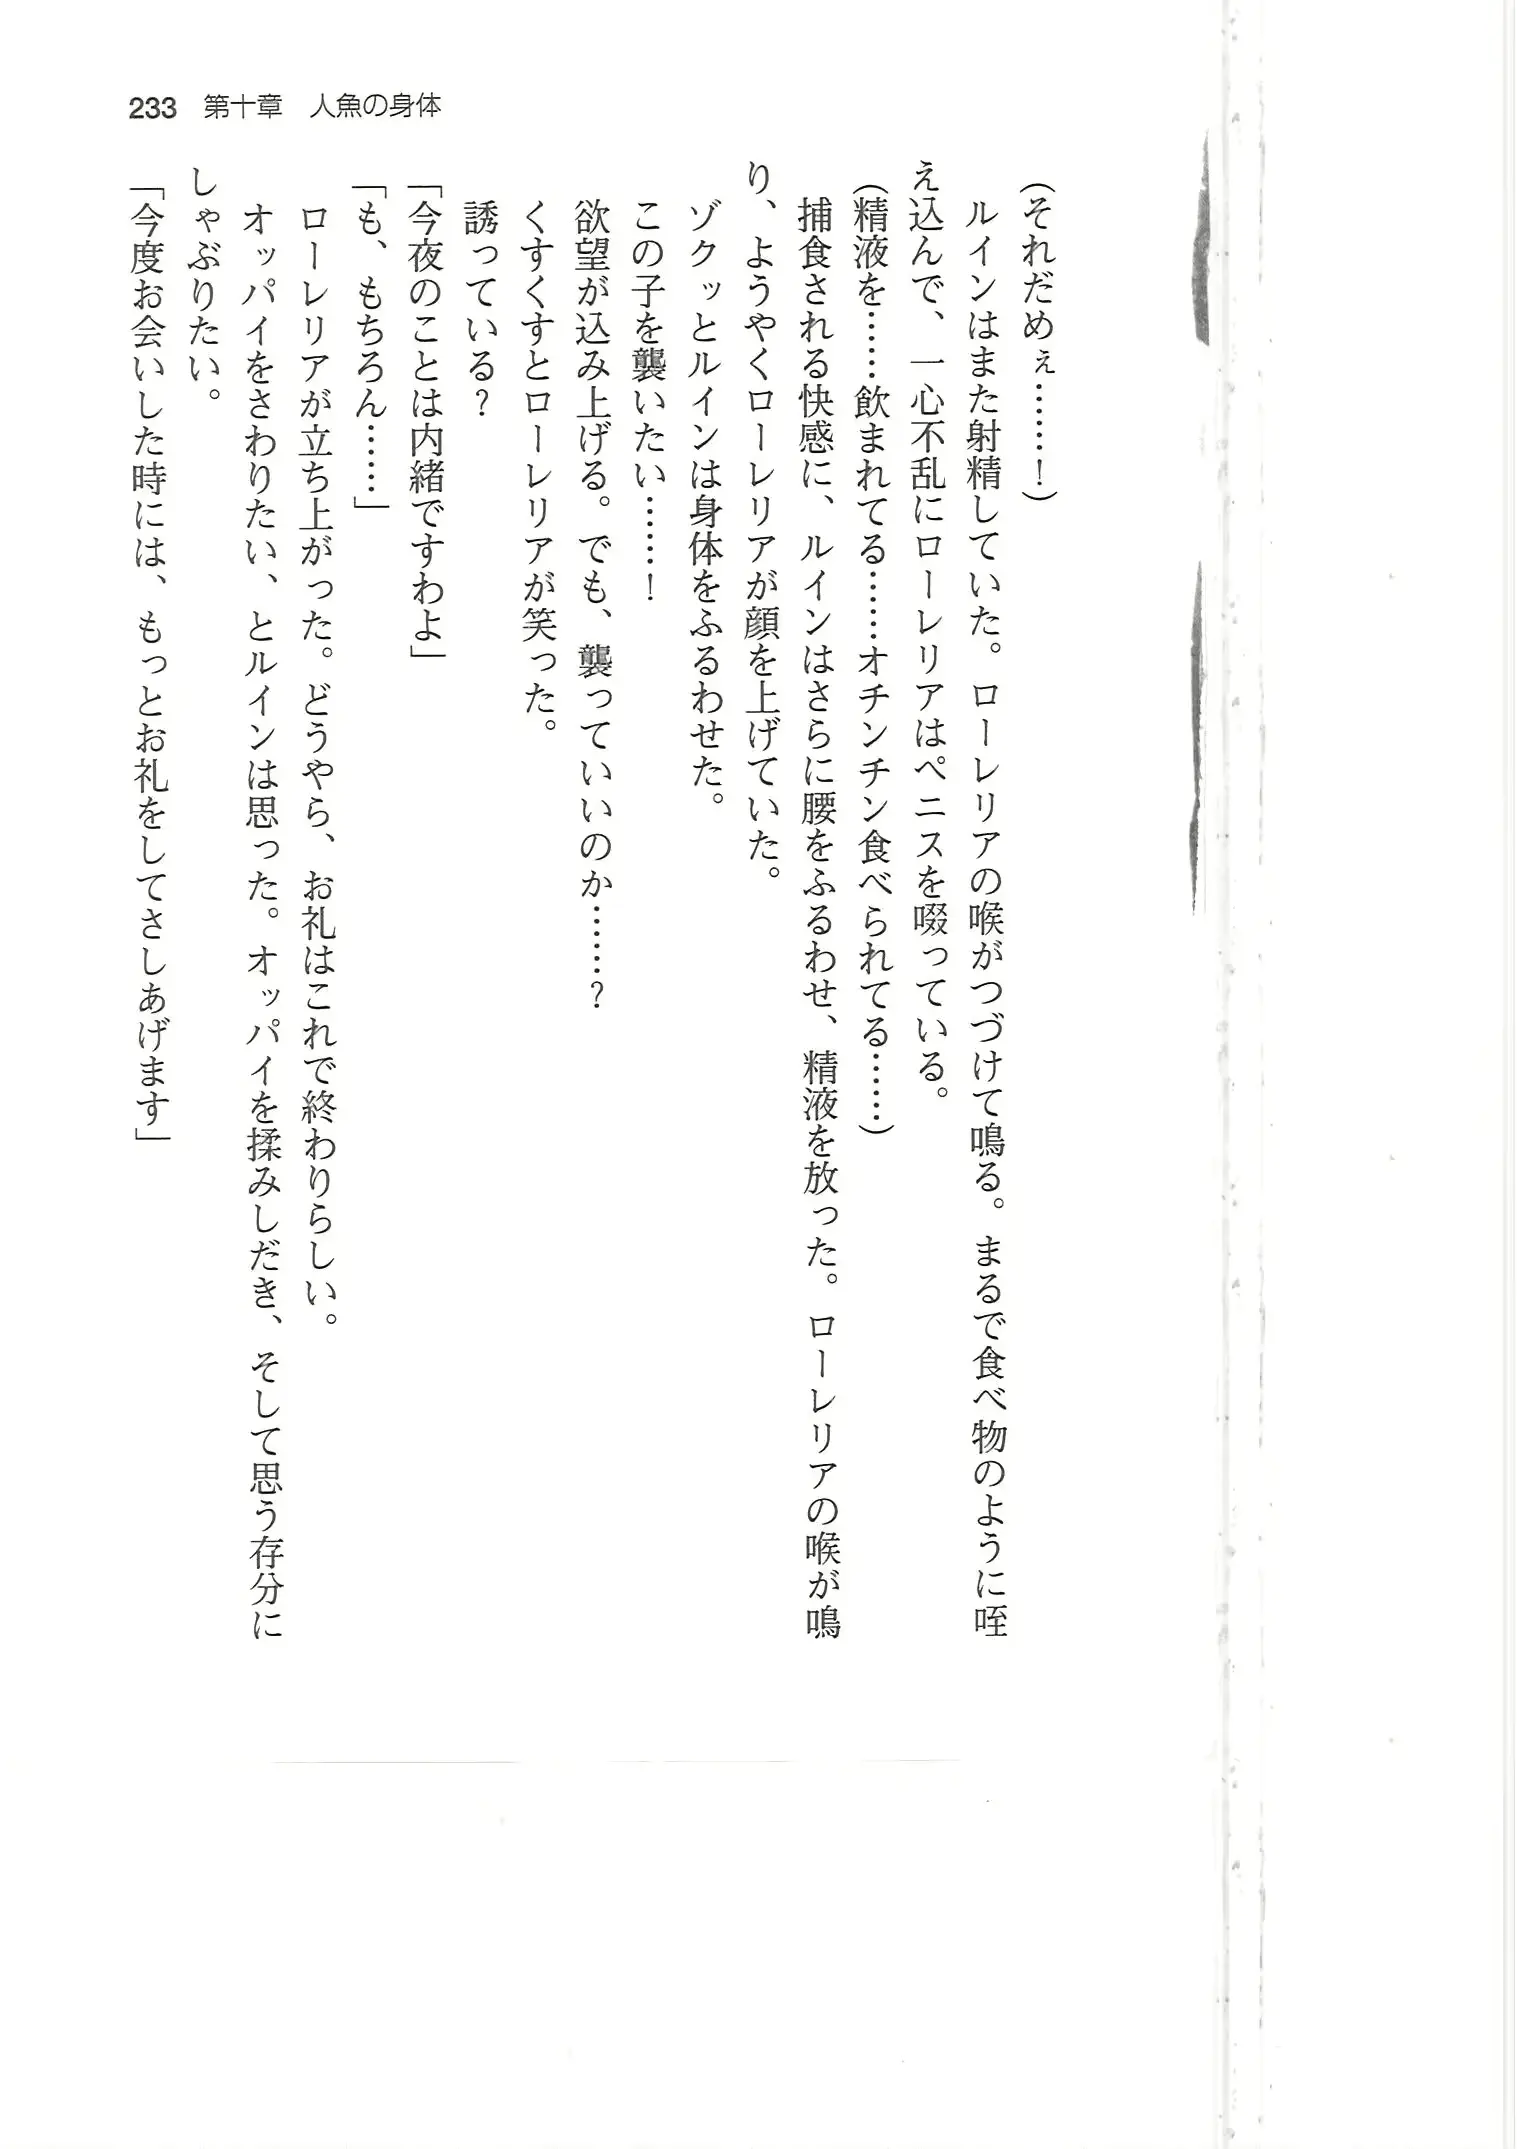 233 第十章 人魚の身体
(それだめぇ……!)
ルインはまた射精していた。ローレリアの喉がつづけて鳴る。まるで食べ物のように咥
え込んで、一心不乱にローレリアはペニスを啜っている。
(精液を……飲まれてる……オチンチン食べられてる……)
捕食される快感に、ルインはさらに腰をふるわせ、精液を放った。ローレリアの喉が鳴
り、ようやくローレリアが顔を上げていた。
ゾクッとルインは身体をふるわせた。
この子を襲いたい……!
欲望が込み上げる。でも、襲っていいのか……?
くすくすとローレリアが笑った。
誘っている?
「今夜のことは内緒ですわよ」
「も、もちろん……」
ローレリアが立ち上がった。どうやら、お礼はこれで終わりらしい。
オッパイをさわりたい、とルインは思った。オッパイを揉みしだき、そして思う存分に
しゃぶりたい。
「今度お会いした時には、もっとお礼をしてさしあげます」